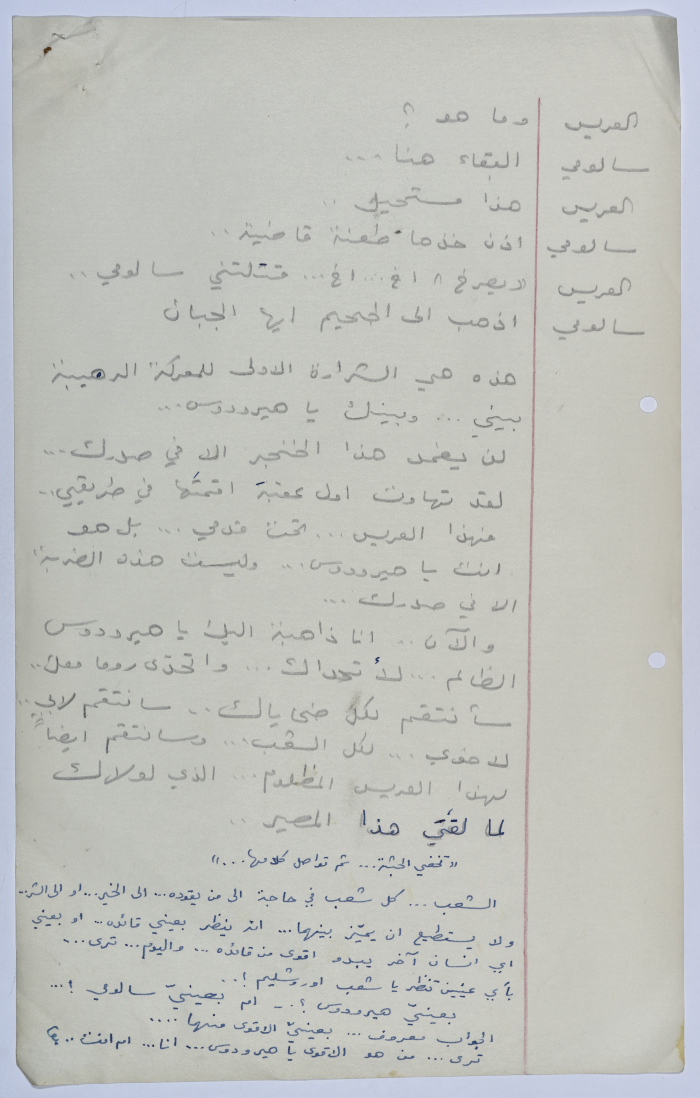 العريس وما هو ؟
سالومي البقاء هنا ...
العريس هذا مستحيل ..
سالومي اذن خذها طعنة قاضية ..
العريس "يصرخ" اخ... اخ... قتلتني سالومي ..
سالومي اذهب الى الجحيم ايها الجبان
هذه هي الشرارة الاولى للمعركة الرهيبة
بيني ... وبينك يا هيرودوس...
لن يغمد هذا الخنجر الا في صدرك ...
لقد تهاوت اول عقبة اقمتَها في طريقي..
فهذا العريس ... تحت قدمي ... بل هو
انت يا هيرودوس... وليست هذه الضربة
الا في صدرك ...
والآن .. انا ذاهبة اليك يا هيرودوس
الظالم ... لأتحداك ... واتحدّى روما معك..
سأنتقم لكل ضحاياك .. سانتقم لابي..
لاخوي ... لكل الشعب... وسانتقم ايضاً
لهذا العريس المظلوم... الذي لولاك
لما لقيَ هذا المصير ..
"تخفي الجثة... ثم تواصل كلامها..."
الشعب ... كل شعب في حاجة الى من يقوده... الى الخير... او الى الشر..
ولا يستطيع ان يميّز بينهما... انه ينظر بعيني قائده... او بعيني
اي انسان آخر يبدو اقوى من قائده ... واليوم... ترى...
بأي عينين تنظر يا شعب اورشليم !..
بعينيّ هيرودوس ؟.. ام بعينيّ سالومي !...
الجواب معروف ... بعينيّ الاقوى منهما ....
ترى ... من هو الاقوى يا هيرودوس... انا... ام انت ..؟